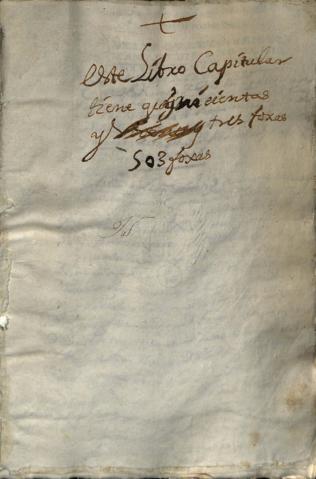 Este Libro Capitular
tiene quinientas
y tres foxas
503 foxas